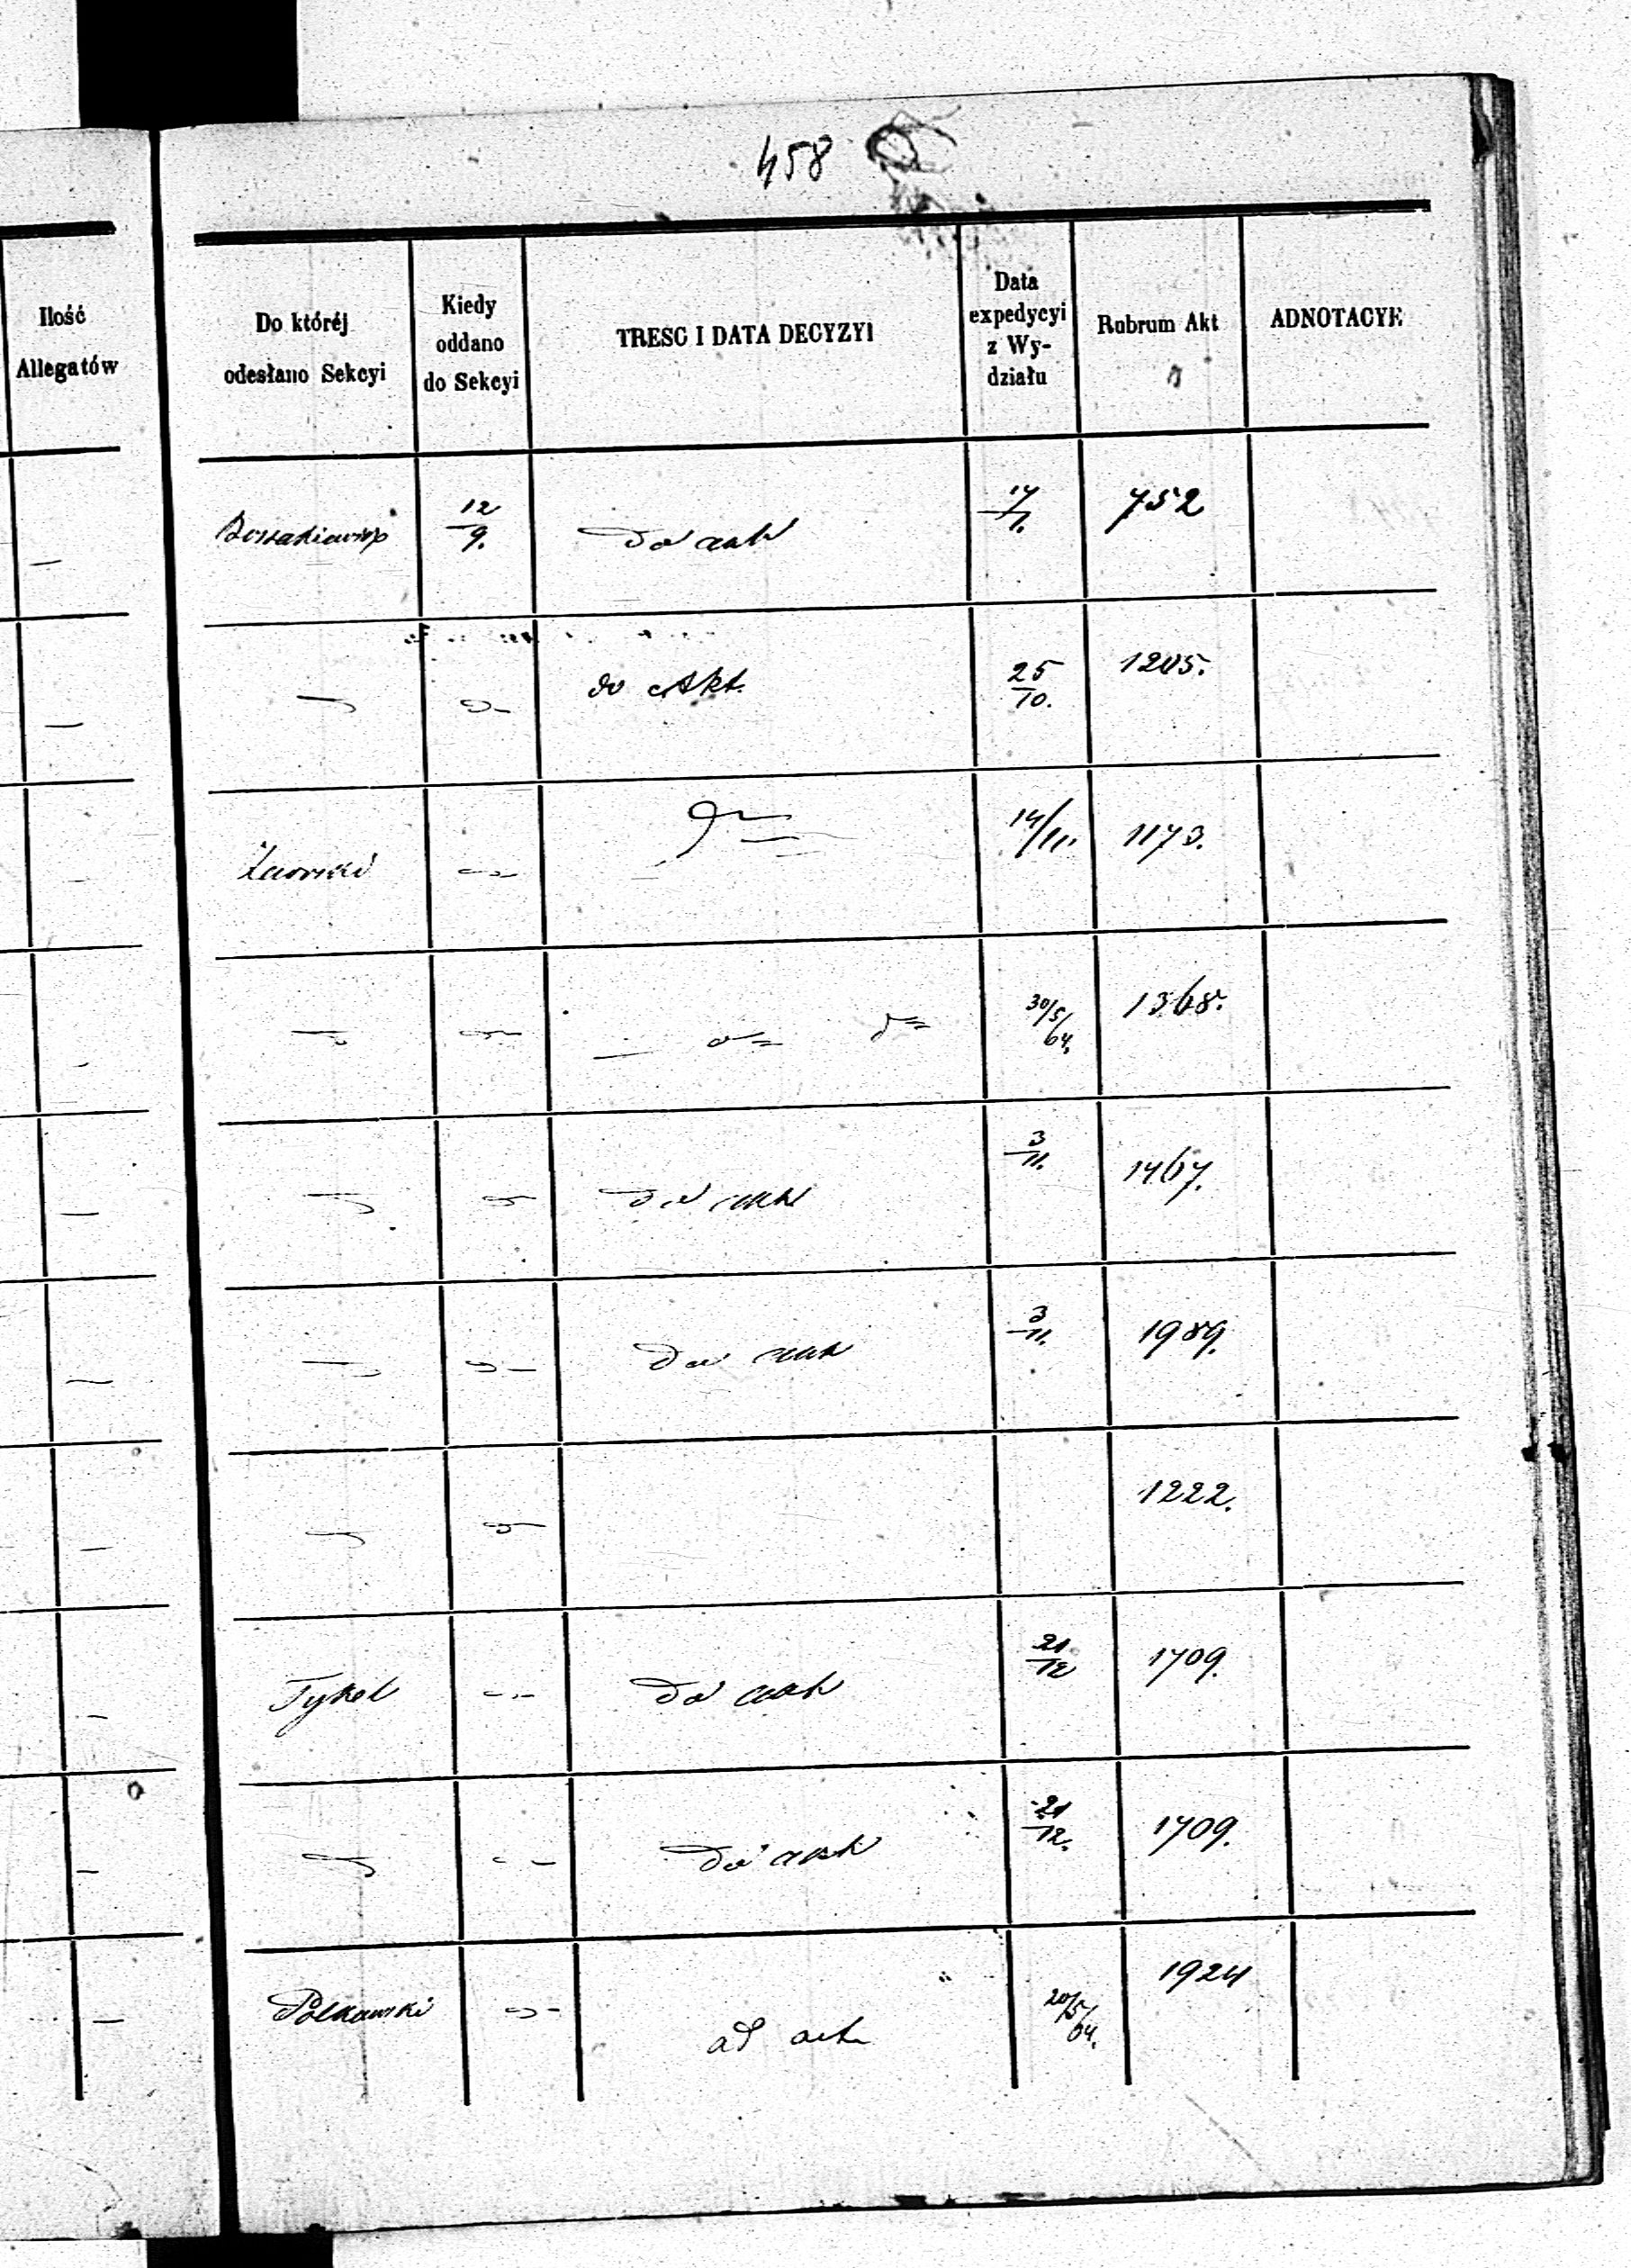 458
Ilość
Allegatów
Do któréj
odesłano Sekcyi
Kiedy
oddano
do Sekcyi
TRESC I DATA DECYZYI
Data
expedycyi
z Wy-
działu
Rubrum Akt
ADNOTACYE
12/9. do akt 752
do Akt. 25/10. 1205.
14/11. 1173.
30/5/64. 1368.
3/11. 1467.
do akt
do akt 3/11. 1989.
1222.
Tykel do akt 21/12 1709.
do akt 21/12. 1709.
Polkowski ad acta 20/5/64. 1924